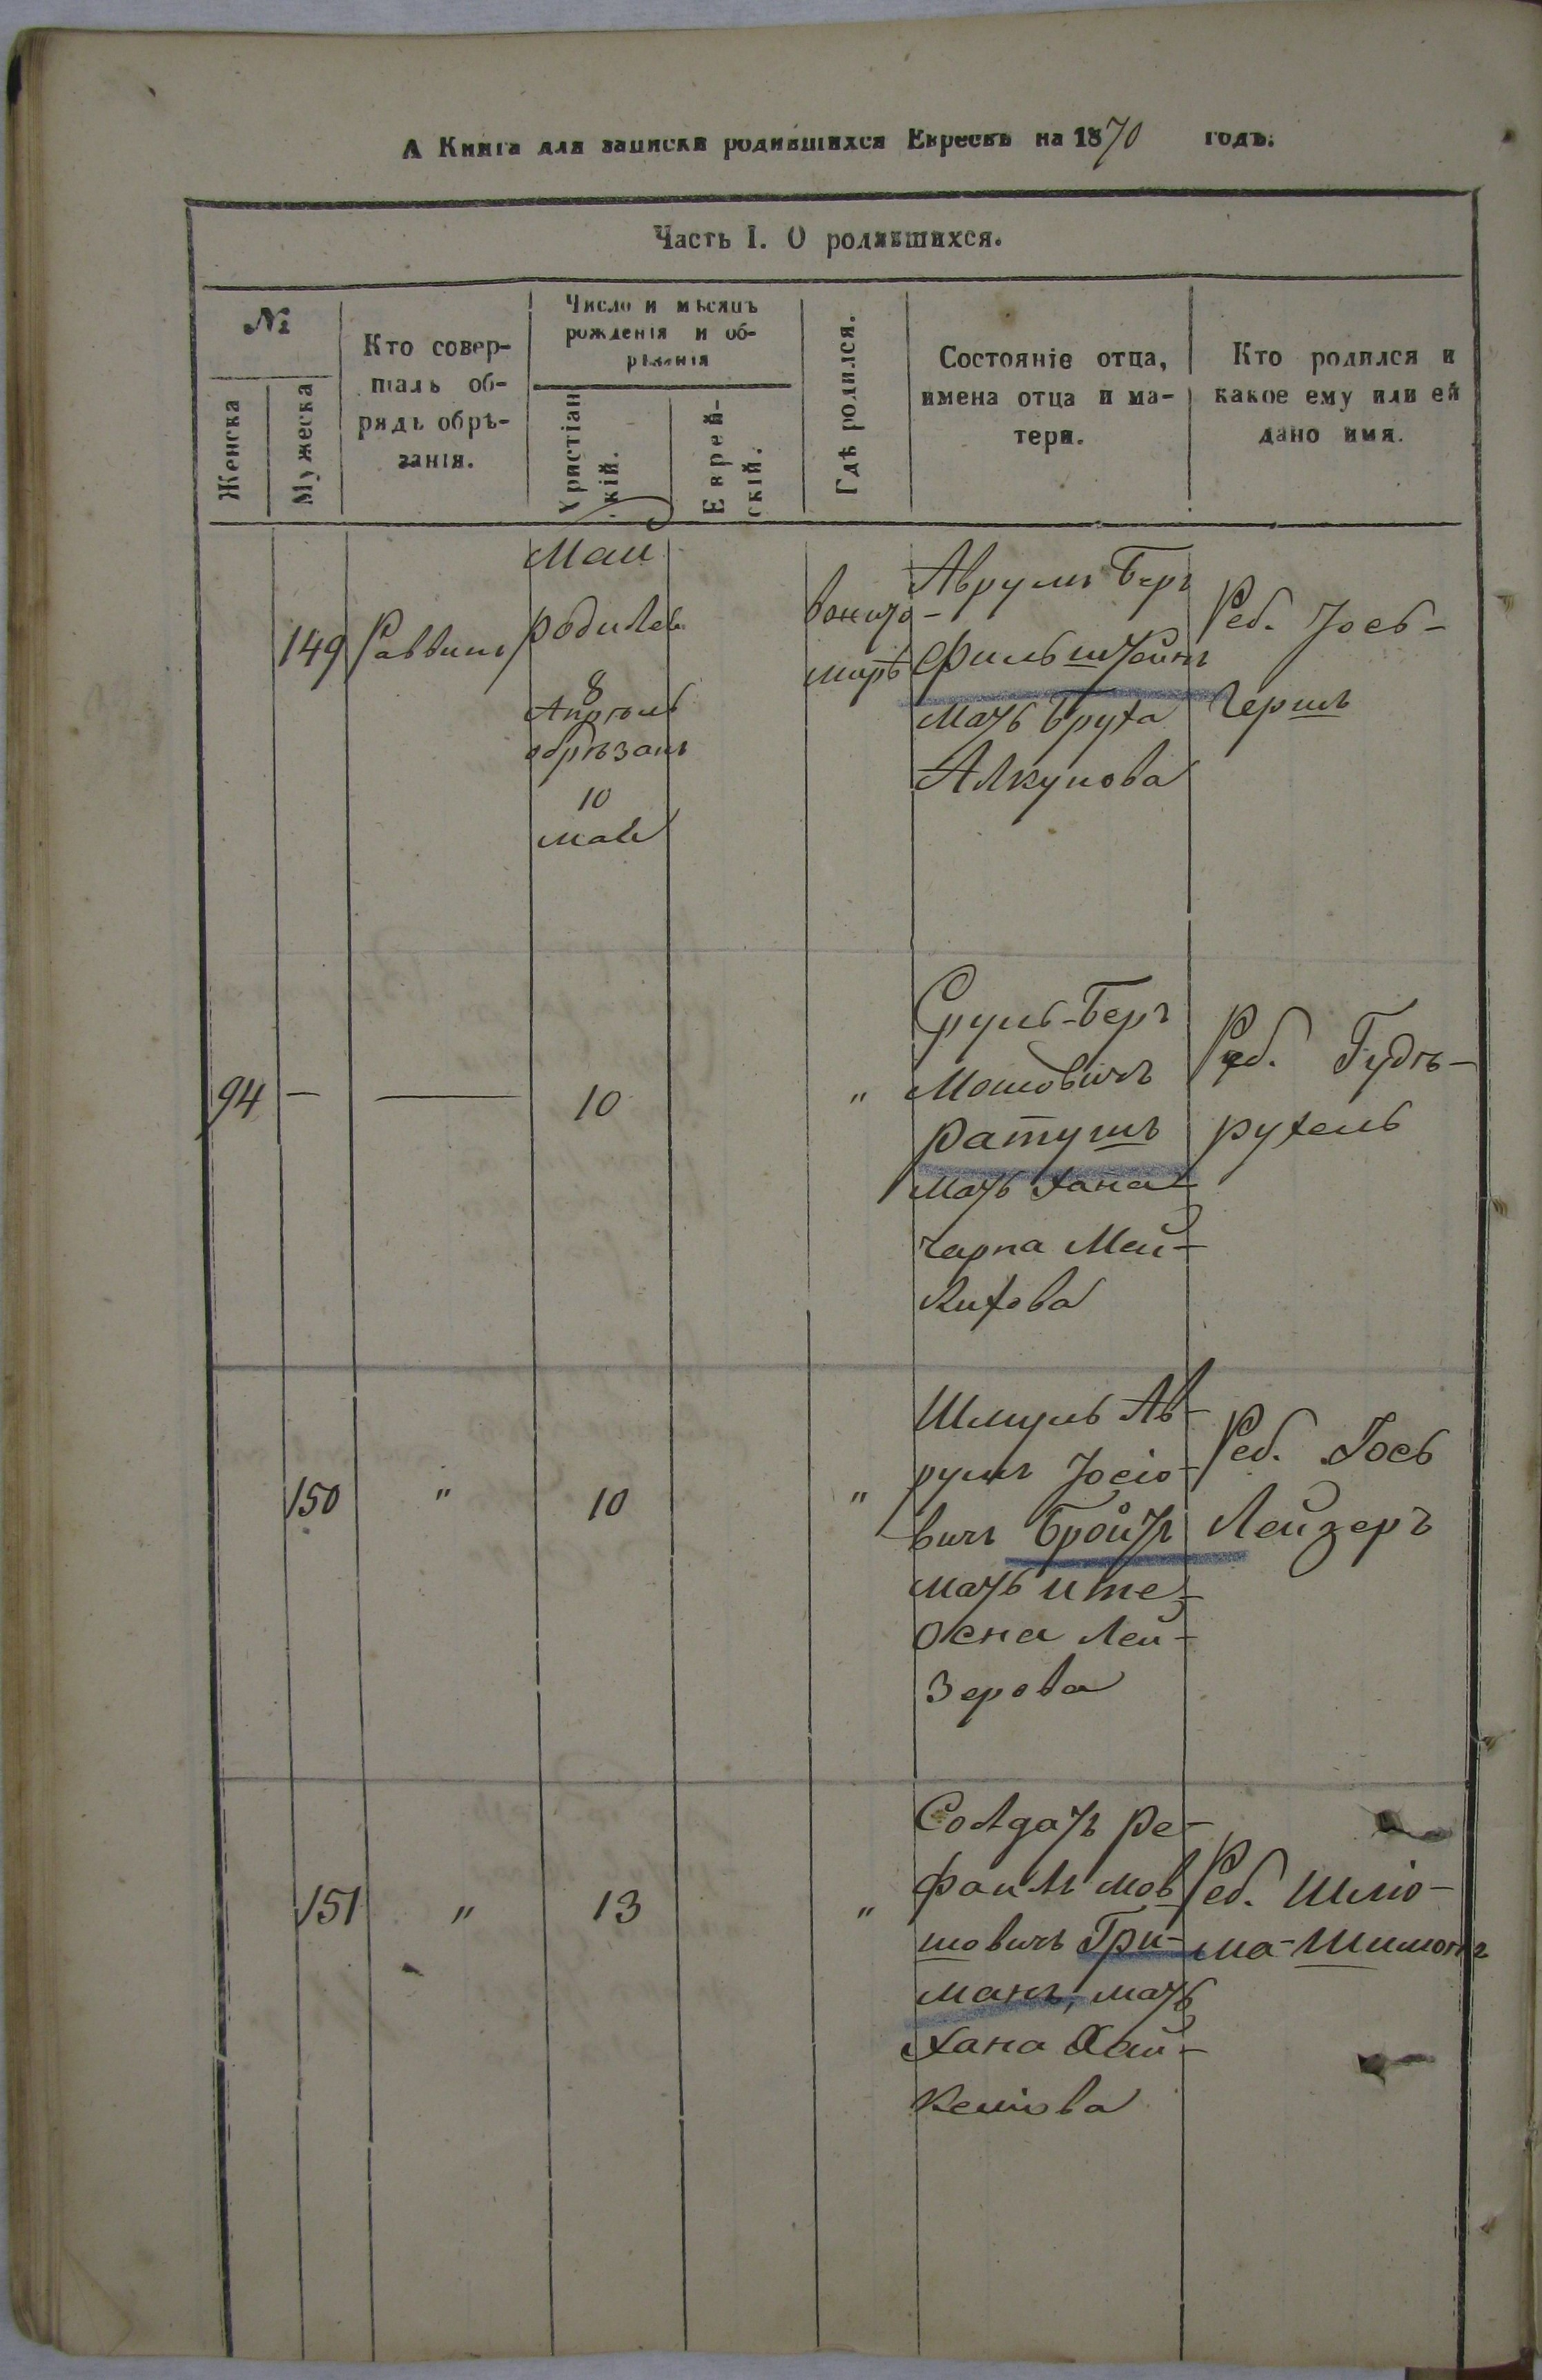 А Книга для записки родившихся Евреевъ на 1870 годъ.
Часть I. О родившихся.
№
Женска
Мужеска
Кто совер-
шалъ об-
рядъ обрѣ-
занія.
Число и мѣсяцъ
рожденія и об-
рѣзанія
Христіан
кій.
Еврей-
скій.
Гдѣ родился.
Состояніе отца,
имена отца и ма-
тери.
Кто родился и
какое ему или ей
дано имя.
149
Раввинъ
Маи
родился
8
Апрѣль
обрѣзанъ
10
мая
Аврумъ Беръ
Фильштейнъ
мать Бруха
Алкунова
Реб. Іось-
Гершъ
94
—
—
10
"
Сруль-Беръ
Мошовичъ
Ратушъ
мать Хана
Чарна Мей-
Реб. Гудъ-
рухель
150
"
10
"
Шмуль Ав-
румъ Іосіо-
вичъ Бройтъ
мать Ите-
Осна Лей-
Зерова
Реб. Іось
Лейзеръ
151
"
13
"
Солдатъ Ре-
фаилъ Мов
шовичъ Гри-
манъ, мать
Хана Хай-
Реб. Шліо-
ма-Шимонъ